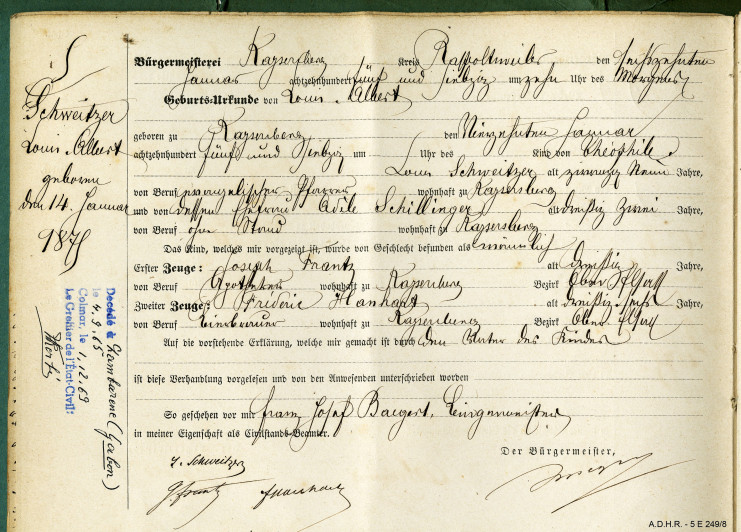 Schweitzer
Louis Albert
geboren
den 14. Januar
1875
Decédé à Lambarene (Gabon)
le 4.9.65
Colmar, le 1.12.69
Le Greffier de l'État-Civil:
Bürgermeisterei Kaysersberg Kreis Rappoltsweiler den sechszehnten
Januar achtzehnhundert fünf und siebzig um zehn Uhr des Morgens
Geburts-Urkunde von Louis Albert
geboren zu Kaysersberg den Vierzehnten Januar
achtzehnhundert fünf und siebzig um Uhr des Kind von Théophile
Louis Schweitzer alt zwanzig Neun Jahre,
von Beruf evangelischer Pfarrer wohnhaft zu Kaysersberg
und von dessen Ehefrau Adèle Schillinger alt dreißig zwei Jahre,
von Beruf ohne Stand wohnhaft zu Kaysersberg
Das Kind, welches mir vorgezeigt ist, wurde von Geschlecht befunden als männlich
Erster Zeuge: Joseph Frantz alt dreißig Jahre,
von Beruf Apotheker wohnhaft zu Kaysersberg Bezirk Ober Elsaß
Zweiter Zeuge: Frédéric Hanhart alt dreißig sechs Jahre,
von Beruf Bierbrauer wohnhaft zu Kaysersberg Bezirk Ober Elsaß
Auf die vorstehende Erklärung, welche mir gemacht ist durch den Vater des Kindes
ist diese Verhandlung vorgelesen und von den Anwesenden unterschrieben worden
So geschehen vor mir Franz Josef Bacgert, Bürgermeister
in meiner Eigenschaft als Civilstands-Beamter.
Der Bürgermeister,
L. Schweitzer
J. Frantz F. Hanhart
A.D.H.R. - 5 E 249/8